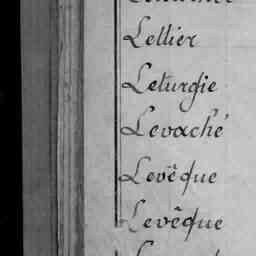 Lettier
Leturgie
Levaché
Levêque
Levêque